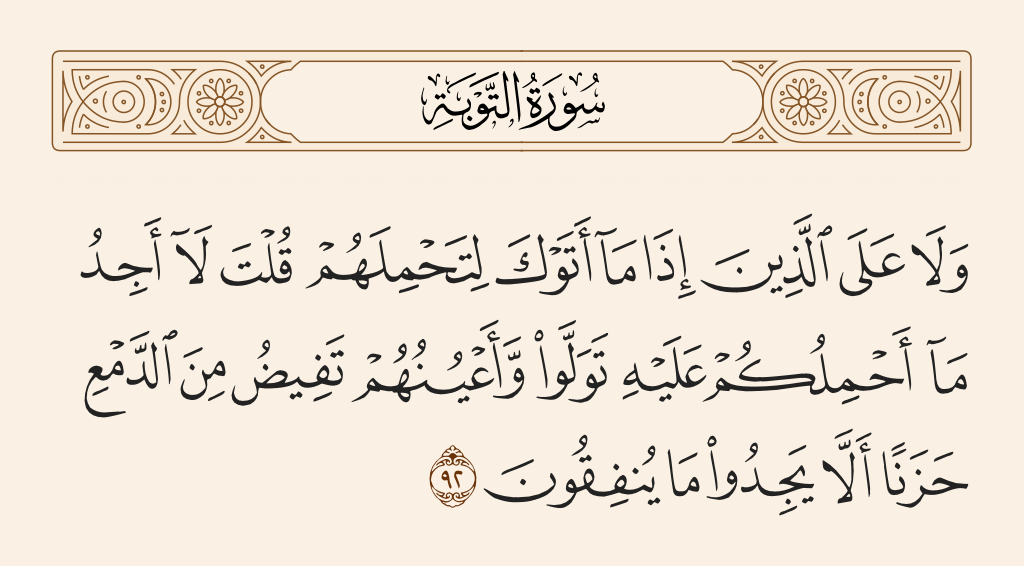 سُورَةُ التَّوۡبَةِ
وَلَا عَلَى ٱلَّذِينَ إِذَا مَآ أَتَوۡكَ لِتَحۡمِلَهُمۡ قُلۡتَ لَآ أَجِدُ
مَآ أَحۡمِلُكُمۡ عَلَيۡهِ تَوَلَّواْ وَّأَعۡيُنُهُمۡ تَفِيضُ مِنَ ٱلدَّمۡعِ
حَزَنًا أَلَّا يَجِدُواْ مَا يُنفِقُونَ ٩٢